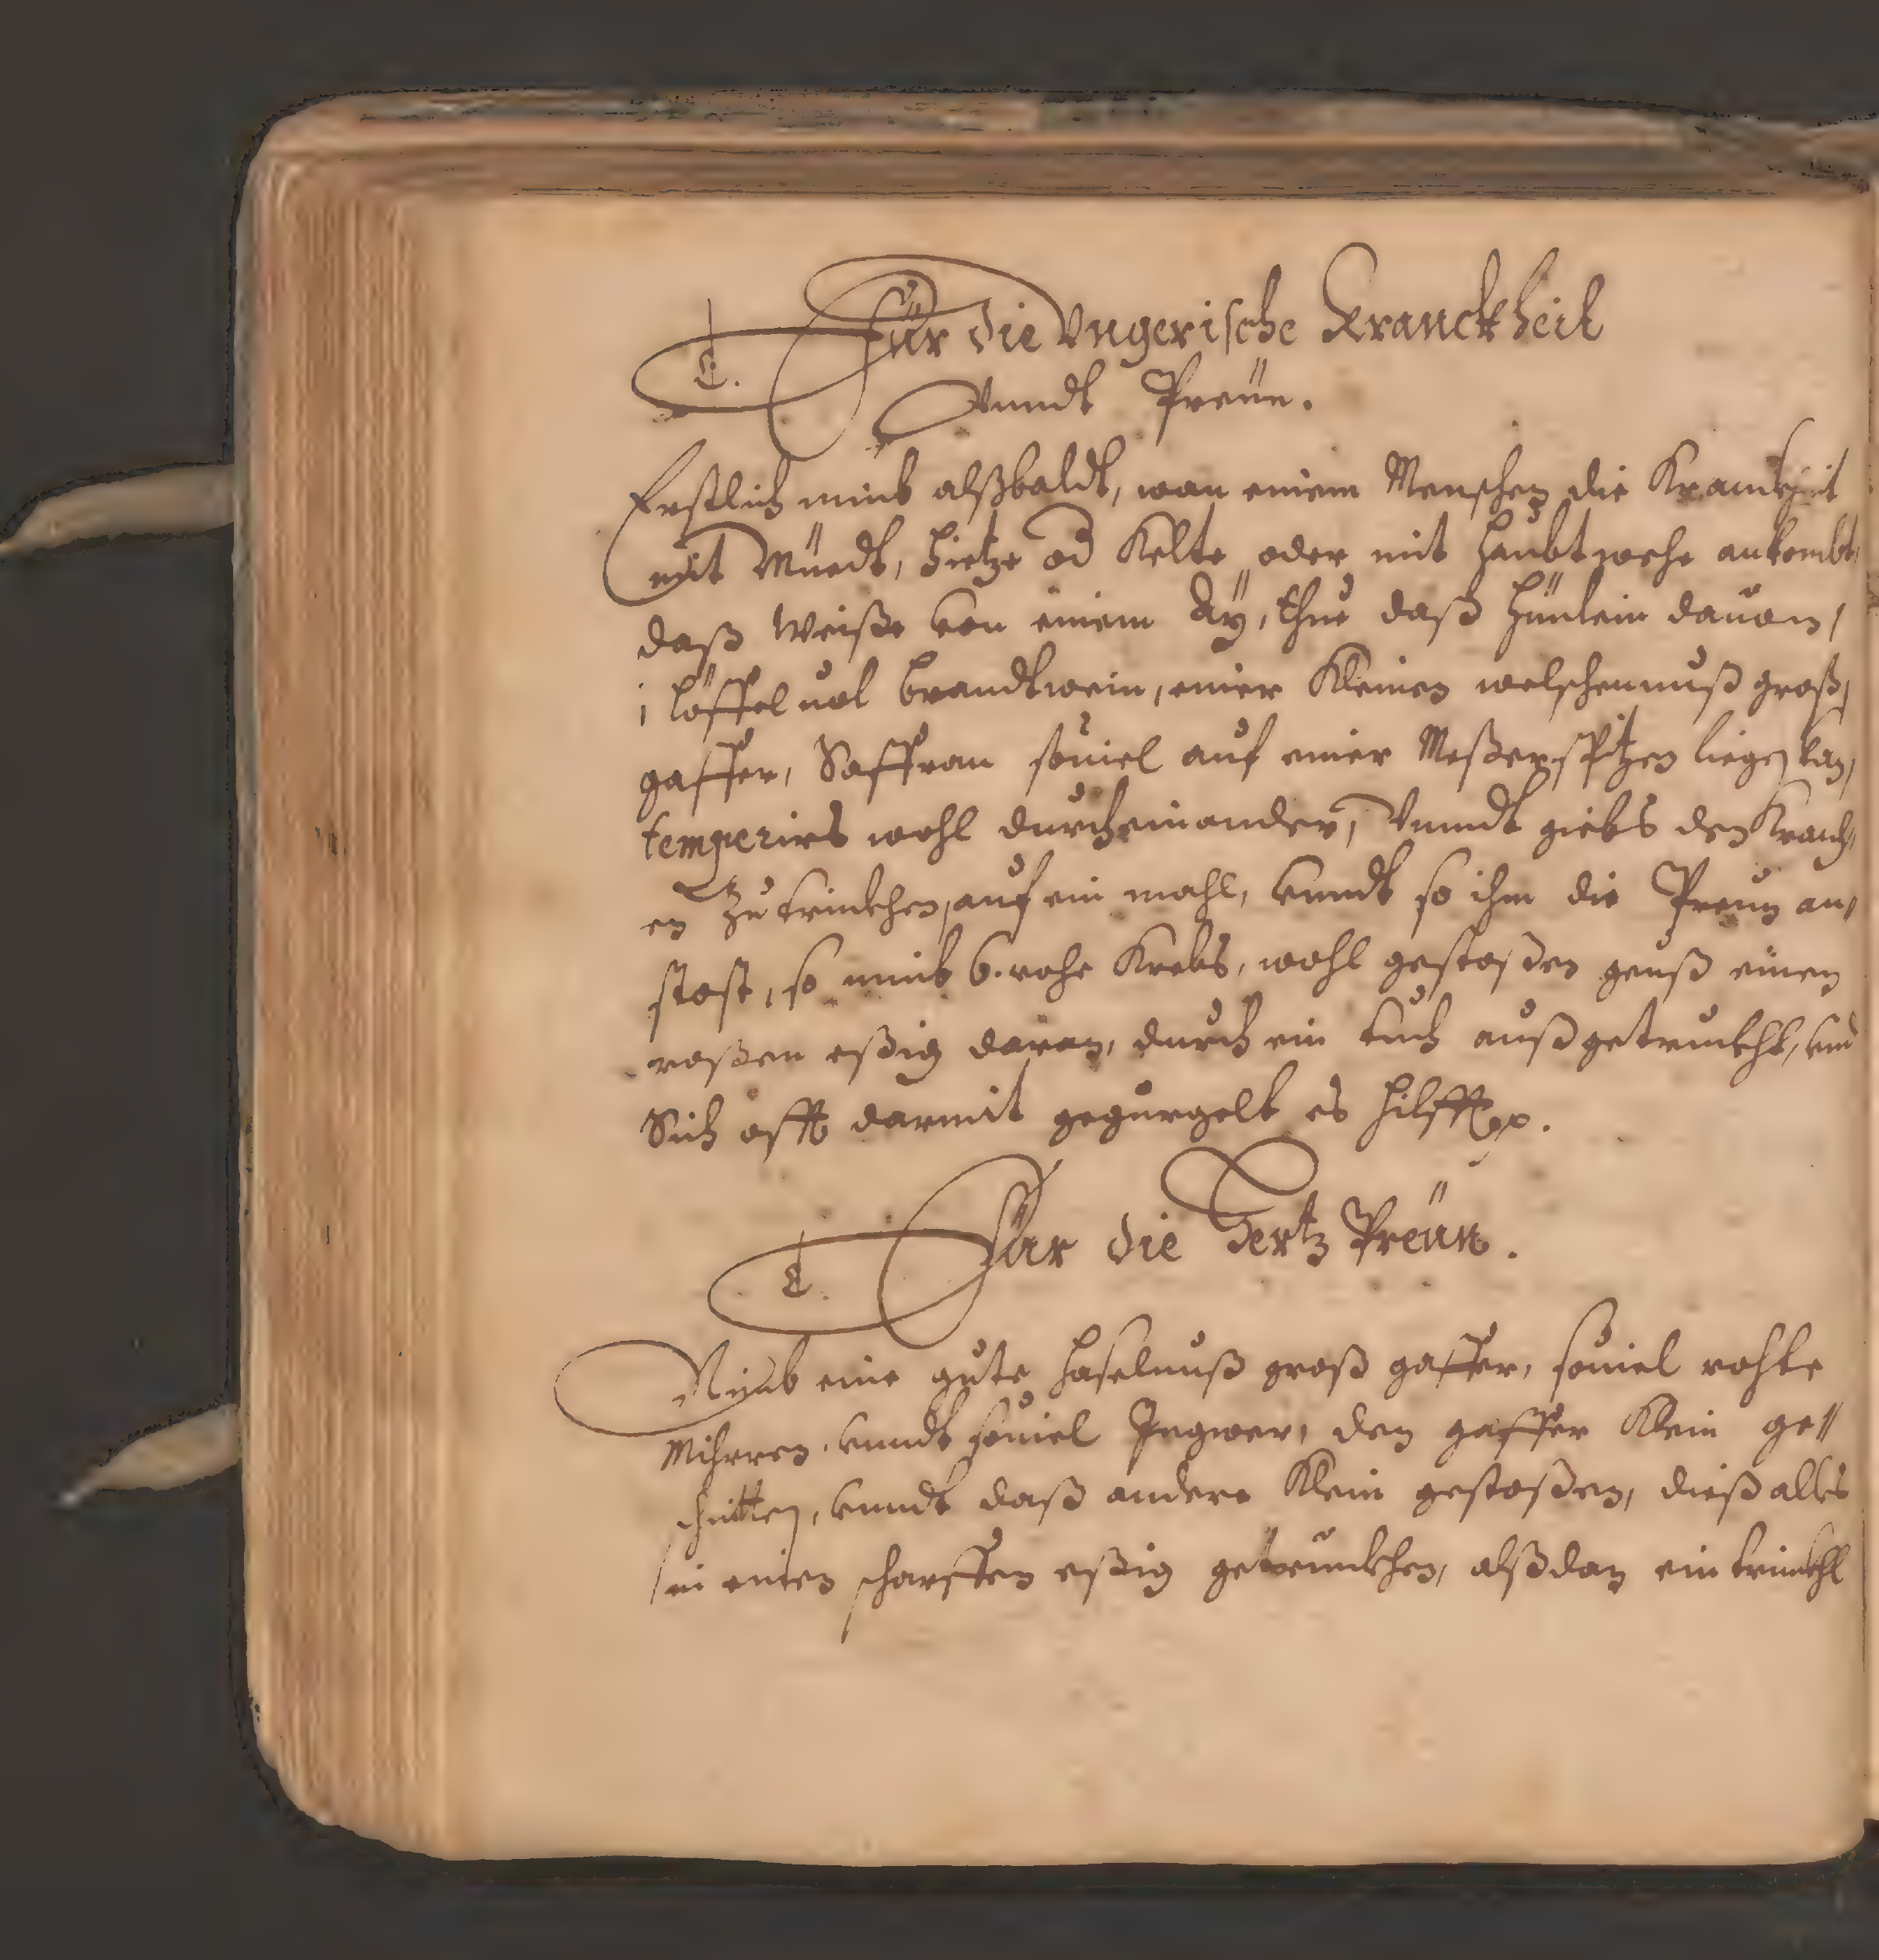 Für die Vngerische Kranckheit
Vnndt Preün.
Erstlich nimb alßbaldt, wan einem Menschen die Kranckheit
mit Müedt, Hietze od Kelte oder mit haubtwehe ankombt,
daß Weiße von einem Aÿ, thue daß hünlein dauon,
1 löffel uol brandtwein, einer Kleinen welschennuß groß,
gaffer, Saffran souiel auf einer Meßerspitzen liegen kan,
temperirs wohl durcheinander, Vnndt giebs den Kranckh,
en zu trinckhen, auf ein mahl, vnndt so ihm die Preun an,
stost, so nimb 6. rohe Krebs, wohl gestoßen geuß einen
roßen eßig daran, durch ein tuch außgetruckht, vnd
Sich offt darmit gegurgelt es hilfft pp.
Für die Hertz Preün.
Nimb eine gute haselnuß groß gaffer, souiel rohte
Mihrren, vnndt souiel Ingwer, den gaffer Klein ge//
schnitten, vnndt daß andere Klein gestoßen, dieß alles
in einen scharffen eßig getrunckhen, alßdan ein trünckhl